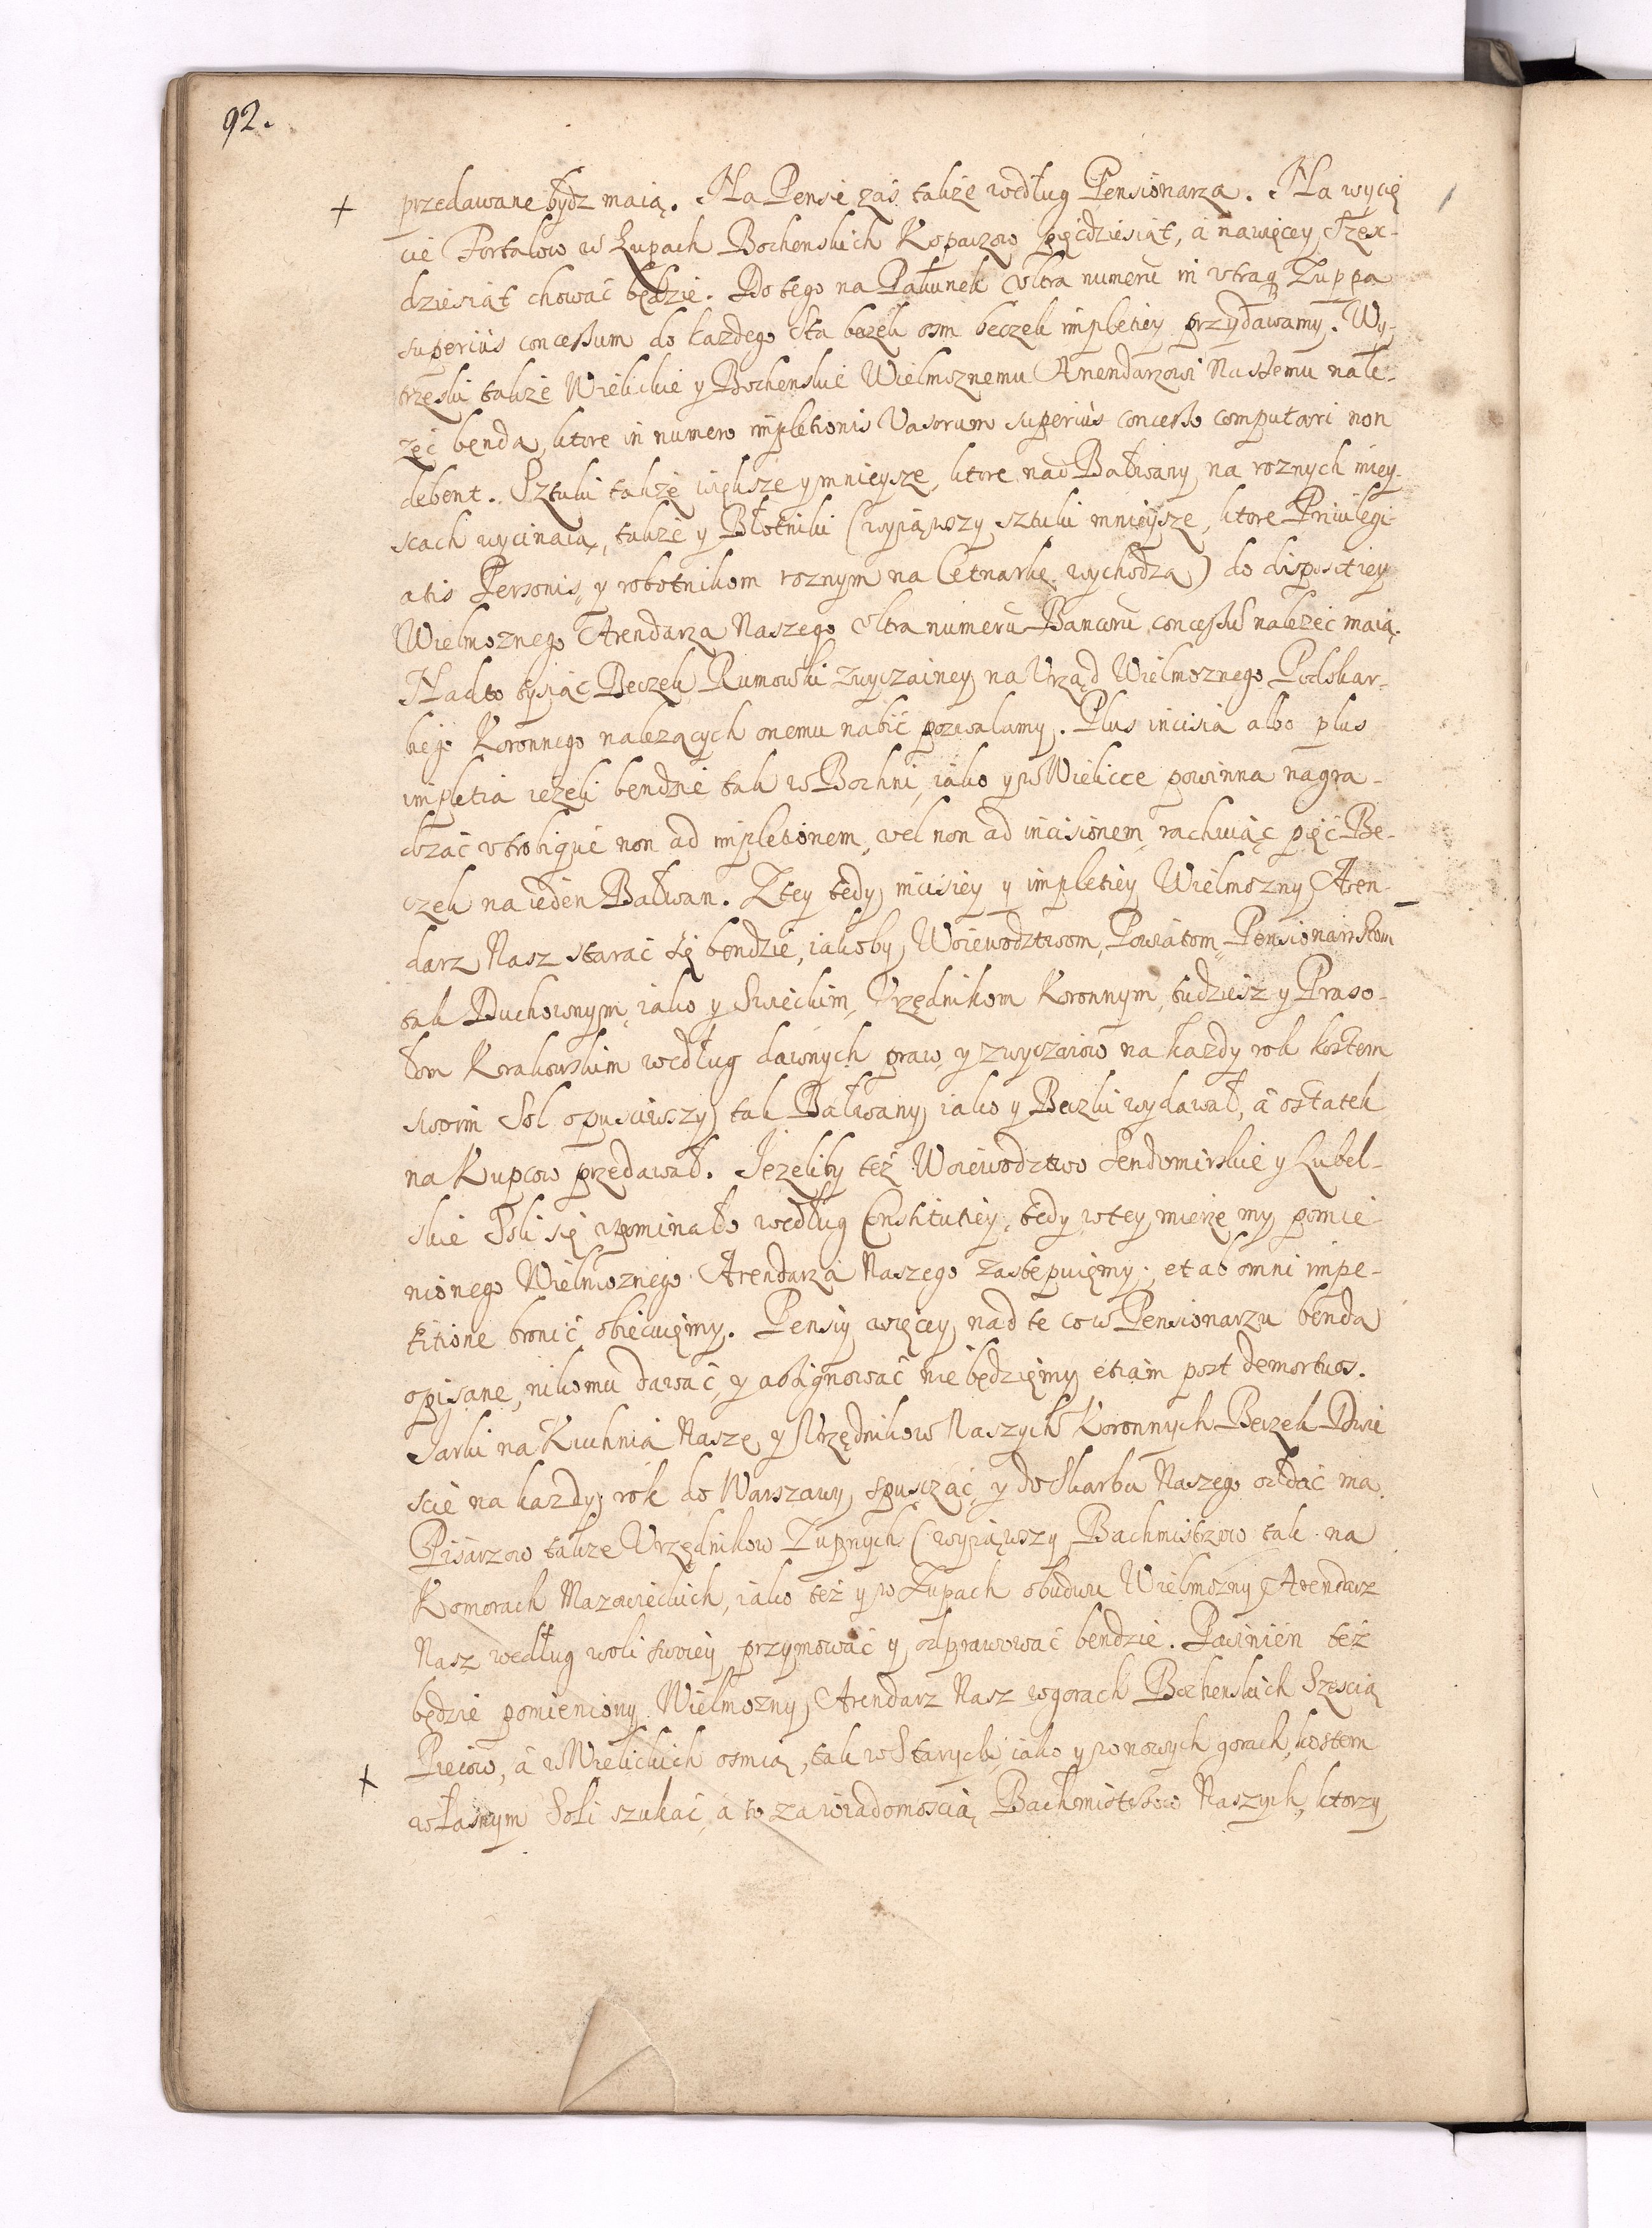 92.
przedawane bydz maią. Na Pensie zas także według Pensionarza. Na wycię
cie Fortalow w Zupach Bochenskich Kopaczow pięcdziesiąt, a nawięcey Szesc-
dziesiąt chować będzie. Do tego na Pakunek Vltra numerū in vtraq Zuppa
superius concessum do kazdego sta beczek osm beczek impletiey przydawamy. Wy-
trzeski także Wielickie y Bochenskie Wielmoznemu Arendarzowi Naszemu nale-
zeć bendą, ktore in numero impletionis Vasorum superius concesso computari non
debent. Sztuki także większe y mnieysze, ktore nad Bałwany na roznych miey-
scach wycinaią, także y Błotniki (wyiąwszy sztuki mnieysze, ktore Priuilegi-
atis Personis, y robotnikom roznym na Cetnarkę wychodzą) do dispositiey
Wielmoznego Arendarza Naszego Vltra numerū Bancorū concessū nalezec maią.
Nadto tysiąc Beczek Rumowki zwyczainey na Vrząd Wielmoznego Podskar-
biego Koronnego nalezących onemu nabić pozwalamy. Plus incisia albo plus
impletia iezeli bendzie tak w Bochni, iako y w Wielicce powinna nagra-
dzać vtrobique non ad impletionem, vel non ad incisionem, rachuiąc pięć Be-
czek na ieden Bałwan. Z tey tedy incisiey y impletiey Wielmozny Aren-
darz Nasz starać się bendzie, iakoby Woiewodztwom, Powiatom, Pensionarzom
tak Duchownym, iako y Swieckim, Vrzędnikom Koronnym, tudziesz y Praso-
łom Krakowskim według dawnych praw, y zwyczaiow na kazdy rok kosztem
swoim Sol opusciwszy, tak Bałwany iako y Beczki wydawał, a ostatek
na Kupcow przedawał. Iezeliby też Woiewodztwo Sendomirskie y Lubel-
skie Soli się vpominało według Constitutiey, tedy w tey mierze my pomie-
nionego Wielmoznego Arendarza Naszego zastepuięmy, et ab omni impe-
titione bronić obiecuięmy. Pensiy więcey nad te co w Pensionarzu bendą
opisane, nikomu dawać, y assignować nie będzięmy etiam post demortuos.
Iarki na Kuchnia Naszę y Vrzędnikow Naszych Koronnych Beczek Dwie
scie na kazdy rok do Warszawy spusczać, y do Skarbu Naszego oddać ma.
Pisarzow takze Vrzędnikow Zupnych (wyiąwszy Bachmistrzow tak na
Komorach Mazowieckich, iako też y w Zupach obudwu Wielmozny Arendarz
Nasz według woli swoiey przymować y odprawować bendzie. Powinien też
będzie pomieniony Wielmozny Arendarz Nasz w gorach Bochenskich Szescią
Piecow, a w Wielickich osmią, tak w Starych, iako y w nowych gorach, kosztem
własnym Soli szukać, a to za wiadomoscią Bachmistrzow Naszych, ktorzy